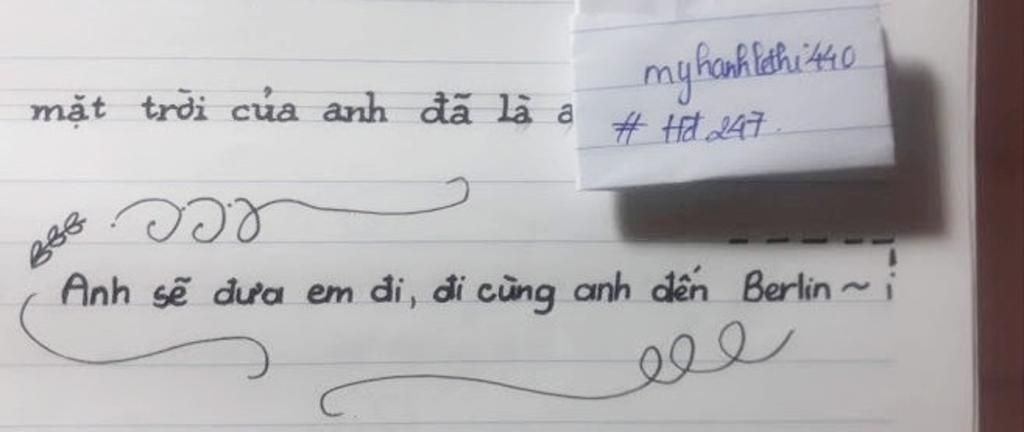 mặt trời của anh đã là a
myhanhlethi440
# Hd 247.
Anh sẽ đưa em đi, đi cùng anh đến Berlin ~